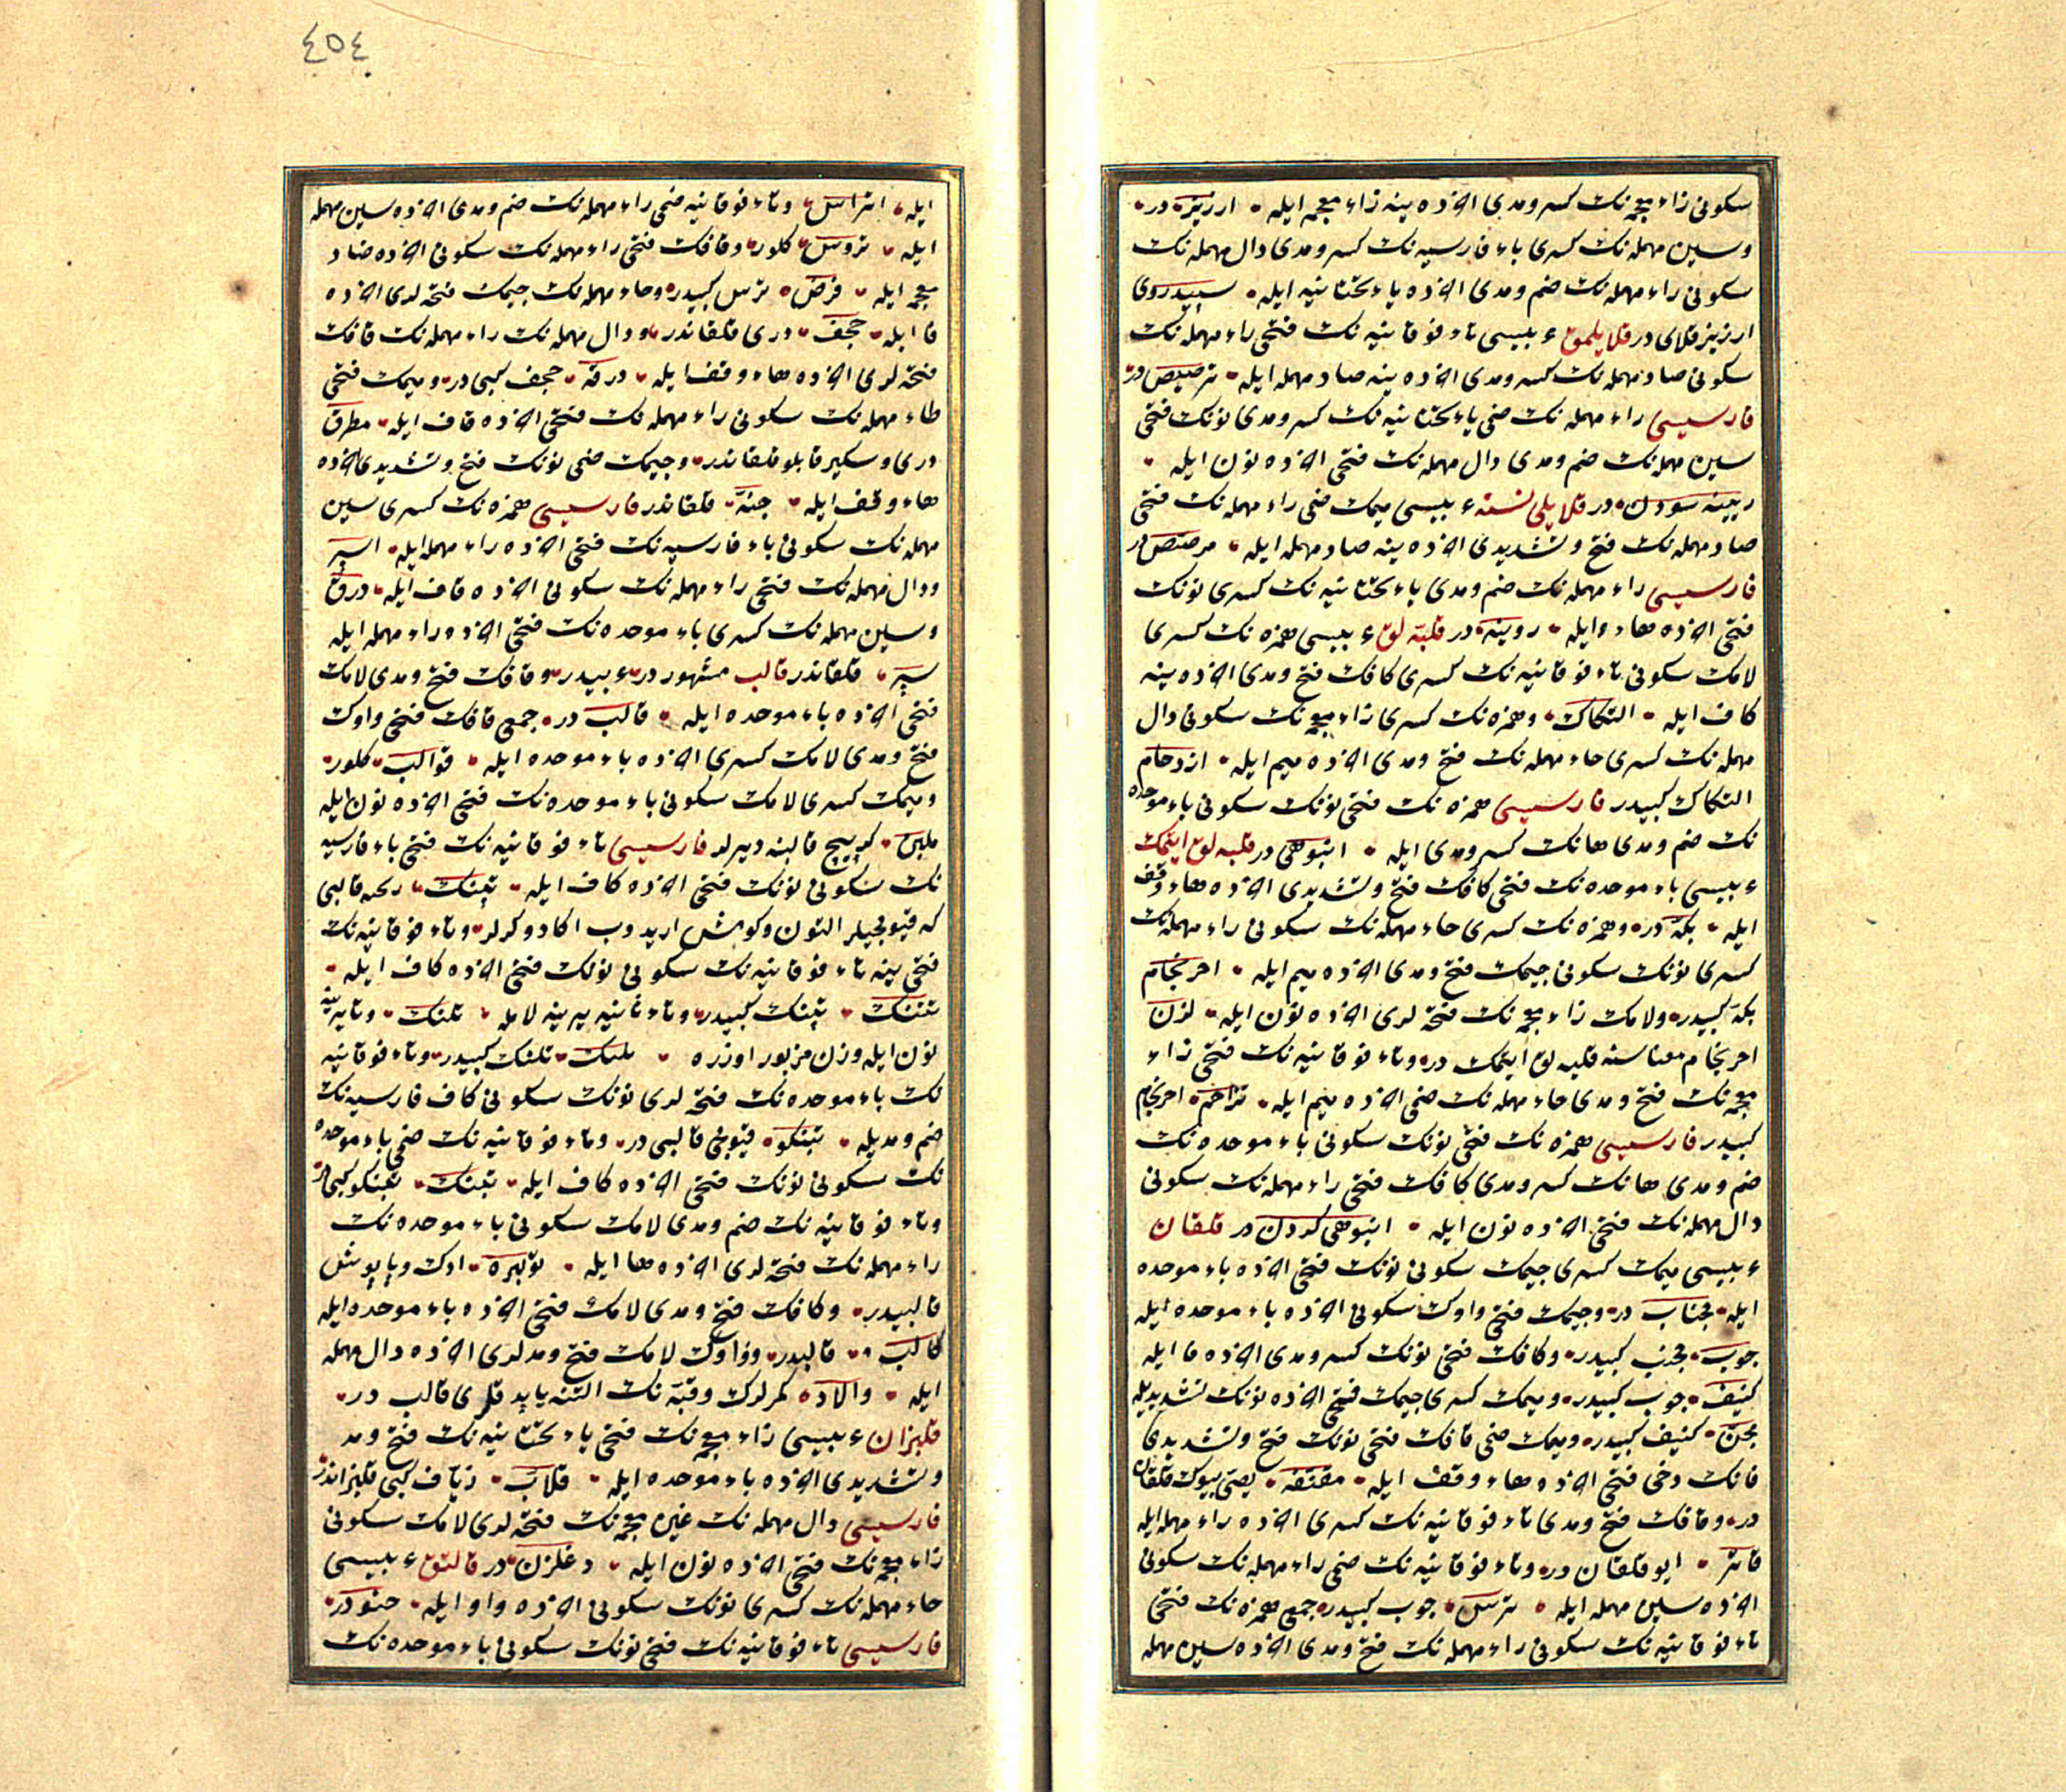 سكونى زاء معجمه نك كسر ومدى الاذه ينه زاء معجمه ايله ارزيز در
وسين مهمله نك كسرى باء فارسيه نك كسر ومدى دال مهمله نك
سكونى راء مهمله نك ضم ومدى الاذه ياء تحتانيه ايله سپيدروى
ارزيز قلاى در قلايلمق ء بيسى تاء فوقانيه نك فتحى راء مهمله نك
سكونى صاد مهمله نك كسر ومدى الاذه ينه صاد مهمله ايله ترصيص در
فارسيسى راء مهمله نك ضمى ياء تحتانيه نك كسر ومدى نونك فتحى
سين مهمله نك ضم ومدى دال مهمله نك فتحى الاذه نون ايله
ريينه سودن در قلايلى نسنه ء بيسى ميمك ضمى راء مهمله نك فتحى
صاد مهمله نك فتح وتشديدى الاذه ينه صاد مهمله ايله مرصص در
فارسيسى راء مهمله نك ضم ومدى ياء تحتانيه نك كسرى نونك
فتحى الاذه هاء ايله رويينه در قلبه لق ء بيسى همزه نك كسرى
لامك سكونى تاء فوقانيه نك كسرى كافك فتح ومدى الاذه ينه
كاف ايله التكاك وهمزه نك كسرى زاء معجمه نك سكونى دال
مهمله نك كسرى حاء مهمله نك فتح ومدى الاذه ميم ايله ازدحام
التكاك كبيدر فارسيسى همزه نك فتحى نونك سكونى باء موحده
نك ضم ومدى هانك كسر ومدى ايله انبوهى در قلبه لق ايتمك
ء بيسى باء موحده نك فتحى كافك فتح وتشديدى الاذه هاء وقف
ايله بكه در وهمزه نك كسرى حاء مهمله نك سكونى راء مهمله نك
كسرى نونك سكونى جيمك فتح ومدى الاذه ميم ايله احرنجام
بكه كبيدر ولامك زاء معجمه نك فتحه لرى الاذه نون ايله لزن
احرنجام معناسنه قلبه لق ايتمك در وتاء فوقانيه نك فتحى زاء
معجمه نك فتح ومدى حاء مهمله نك ضمى الاذه ميم ايله تزاحم احرنجام
كبيدر فارسيسى همزه نك فتحى نونك سكونى باء موحده نك
ضم ومدى هانك كسر ومدى كافك فتحى راء مهمله نك سكونى
دال مهمله نك فتحى الاذه نون ايله انبوهى كردن در قلقان
ء بيسى ميمك كسرى جيمك سكونى نونك فتحى الاذه باء موحده
ايله مجناب در وجيمك فتحى واوك سكونى الاذه باء موحده ايله
جوب مجنب كبيدر وكافك فتحى نونك كسر ومدى الاذه فا ايله
كنيف جوب كبيدر وميمك كسرى جيمك فتحى الاذه نونك تشديديله
مجن كنيف كبيدر وميمك ضمى قافك فتحى نونك فتح وتشديدى
فانك دخى فتحى الاذه هاء وقف ايله مقنفه يصى بيوك قلقان
در وقافك فتح ومدى تاء فوقانيه نك كسرى الاذه راء مهمله ايله
قاتر ايو قلقان در وتاء فوقانيه نك ضمى راء مهمله نك سكونى
الاذه سين مهمله ايله ترس جوب كبيدر جمعى همزه نك فتحى
تاء فوقانيه نك سكونى راء مهمله نك فتح ومدى الاذه سين مهمله
٤٥٤
ايله اتراس وتاء فوقانيه ضمى راء مهمله نك ضم ومدى الاذه سين مهمله
ايله تروس كلور وقافك فتحى راء مهمله نك سكونى الاذه ضاد
معجمه ايله قرض ترس كبيدر وحاء مهمله نك جيمك فتحه لرى الاذه
فا ايله حجف درى قلقاندر ودال مهمله نك راء مهمله نك قافك
فتحه لرى الاذه هاء وقف ايله درقه حجف كبى در وميمك فتحى
طاء مهمله نك سكونى راء مهمله نك فتحى الاذه قاف ايله مطرق
درى وسكير قابلو قلقاندر وجيمك ضمى نونك فتح وتشديدى الاذه
هاء وقف ايله جنه قلقاندر فارسيسى همزه نك كسرى سين
مهمله نك سكونى باء فارسيه نك فتحى الاذه راء مهمله ايله اسپر
ودال مهمله نك فتحى راء مهمله نك سكونى الاذه قاف ايله درق
وسين مهمله نك كسرى باء موحده نك فتحى الاذه راء مهمله ايله
سپر قلقاندر قالب مشهور در ء بيدر وقافك فتح ومدى لامك
فتحى الاذه باء موحده ايله قالب در جمعى قافك فتحى واوك
فتح ومدى لامك كسرى الاذه باء موحده ايله قوالب كلور
وميمك كسرى لامك سكونى باء موحده نك فتحى الاذه نون ايله
ملبن كرپيج قالبنه ديرلر فارسيسى تاء فوقانيه نك فتحى باء فارسيه
نك سكونى نونك فتحى الاذه كاف ايله تپنك ريخته قالبى
كه قيوجيلر التون وكومش اريدوب اكا دوكرلر وتاء فوقانيه نك
فتحى ينه تاء فوقانيه نك سكونى نونك فتحى الاذه كاف ايله
تتنك تپنك كبيدر وتاء ثانيه يرينه لامله تلنك وتا يرينه
نون ايله وزن مزبور اوزره تلنك كبيدر وتاء فوقانيه
نك باء موحده نك فتحه لرى نونك سكونى كاف فارسيه نك
ضم ومديله تبنكو قيوجى قالبى در وتاء فوقانيه نك ضمى باء موحده
نك سكونى نونك فتحى الاذه كاف ايله تبنك تبنكو كبيدر
وتاء فوقانيه نك ضم ومدى لامك سكونى باء موحده نك
راء مهمله نك فتحه لرى الاذه ها ايله تولبره ادك وپاپوش
قالبيدر وكافك فتح ومدى لامك فتحى الاذه باء موحده ايله
كالب قالبدر وواوك لامك فتح ومدلرى الاذه دال مهمله
ايله والاد كمرلرك وقبه نك التنه ياپدقلرى قالب در
قلبزان ء بيسى زاء معجمه نك فتحى ياء تحتانيه نك فتح ومد
وتشديدى الاذه باء موحده ايله قلاب زياف كبى قلبزاندر
فارسيسى دال مهمله نك غين معجمه نك فتحه لرى لامك سكونى
زاء معجمه نك فتحى الاذه نون ايله دغلزن در قالتق ء بيسى
حاء مهمله نك كسرى نونك سكونى الاذه واو ايله حنو در
فارسيسى تاء فوقانيه نك فتحى نونك سكونى باء موحده نك